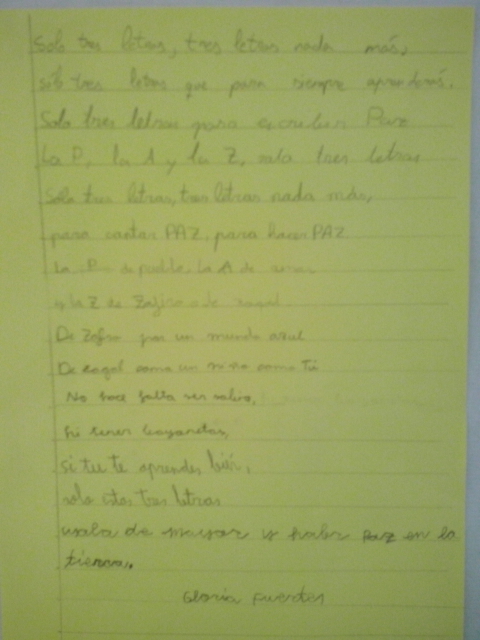 Solo tres letras, tres letras nada más,
sólo tres letras que para siempre aprenderás.
Solo tres letras para escribir Paz
La P, la A y la Z, solo tres letras
Sólo tres letras, tres letras nada más,
para cantar PAZ, para hacer PAZ
La P de pueblo, la A de
y la Z de Zafiro o de zagal
De Zafiro por un mundo azul
De zagal como un niño como Tú
No hace falta ser sabio,
ni tener bayonetas,
si tu te aprendes bien,
solo estas tres letras
usala de mayor y habrá PAZ en la
tierra.
Gloria Fuertes